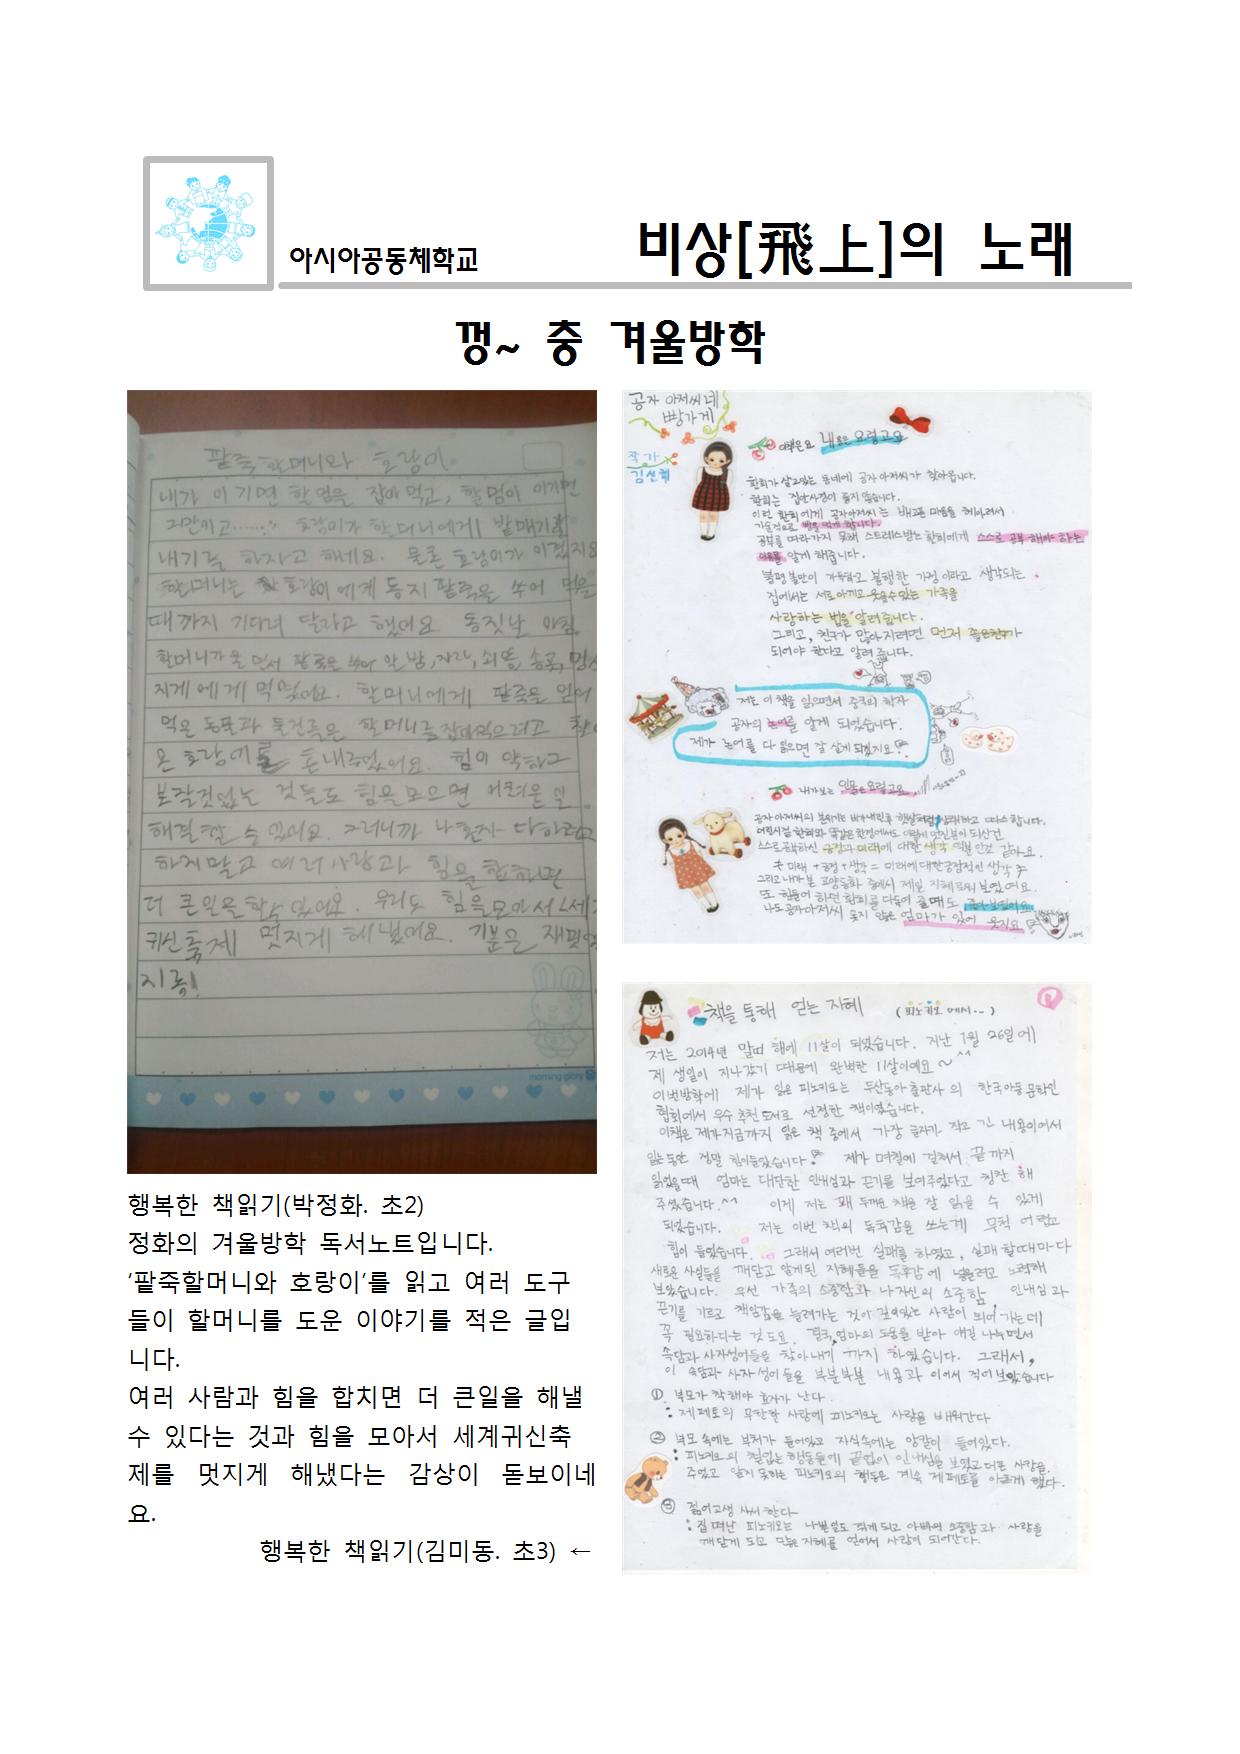 아시아공동체학교
비상[飛上]의 노래
껑~ 충 겨울방학
팥죽할머니와 호랑이
내가 이기면 할멈을 잡아 먹고, 할멈이 이기면
그만이고……." 호랑이가 할머니에게 밭매기
내기를 하자고 해네요. 물론 호랑이가 이겼지요
할머니는 호랑이에게 동지 팥죽을 쑤어 먹을
때까지 기다려 달라고 했어요. 동짓날 아침
할머니가 울면서 팥죽을 쑤어 알밤, 자라, 쇠똥, 송곳,
지게에게 먹였어요. 할머니에게 팥죽을 얻어
먹은 동물과 물건들은 할머니를 잡아먹으려고
온 호랑이를 혼내주었어요. 힘이 약하고
보잘것없는 것들도 힘을 모으면 어려운 일
해결할 수 있어요. 그러니까 나 혼자 다하려고
하지말고 여러 사람과 힘을 합하면
더 큰일을 할수 있어요. 우리도 힘을모아서 세계
귀신축제 멋지게 해냈어요. 기분은 재밌었
지롱!
morning glory
공자 아저씨네
빵가게
작가
김선희
이책은요 내용은 요렇고요
환희가 살고있는 동네에 공자 아저씨가 찾아옵니다.
환희는 집안사정이 좋지 않습니다.
이런 환희에게 공자아저씨는 배고픈 마음을 헤아려서
기술적으로 빵을 먹게 합니다.
공부를 따라가지 못해 스트레스받는 환희에게 스스로 공부 해야 하는
이유를 알게 해줍니다.
불평불만이 가득하고 불행한 가정이라고 생각되는
집에서는 서로아끼고 웃을수있는 가족을
사랑하는 법을 알려줍니다.
그리고, 친구가 많아지려면 먼저 좋은친구가
되어야 한다고 알려 줍니다.
저는 이 책을 읽으면서 중국의 학자
공자의 논어를 알게 되었습니다.
제가 논어를 다 읽으면 잘 살게 되겠지요?
내가보는 인물은 요렇고요
공자 아저씨의 분위기는 비가내린후 햇살처럼 환하고 따스합니다.
어린시절 환희와 똑같은 환경에서도 이렇게 멋진분이 되신건
스스로공부하신 긍정과 미래에 대한 생각 덕분인것 같아요.
미래 + 긍정 + 생각 = 미래에 대한긍정적인 생각
그리고 내가 본 교양동화 중에서 제일 지혜로워 보였어요.
또 힘들어 하던 환희를 다독여 줄때도 좋아보였어요
나도 공자아저씨 못지 않은 엄마가 있어 웃지요
책을 통해 얻는 지혜 (피노키오 에서..)
저는 2014년 말띠 해에 11살이 되었습니다. 지난 1월 26일에
제 생일이 지나갔기 때문에 완벽한 11살이에요~^^
이번방학에 제가 읽은 피노키오는 두산동아출판사의 한국아동문학인
협회에서 우수 추천도서로 선정한 책이였습니다.
이책은 제가지금까지 읽은 책 중에서 가장 글자가 작고 긴 내용이어서
읽는동안 정말 힘이들었습니다! 제가 며칠에 걸쳐서 끝까지
읽었을때 엄마는 대단한 인내심과 끈기를 보여주었다고 칭찬 해
주셨습니다.^^ 이제 저는 꽤 두꺼운 책을 잘 읽을 수 있게
되었습니다. 저는 이번 책의 독후감을 쓰는게 무척 어렵고
힘이 들었습니다. 그래서 여러번 실패를 하였고, 실패 할때마다
새로운 사실들을 깨닫고 알게된 지혜들을 독후감에 넣을려고 노력해
보았습니다. 우선 가족의 소중함과 나자신의 소중함, 인내심과
끈기를 기르고 책임감을 늘려가는 것이 진정한 사람이 되어가는데
꼭 필요하다는 것도요. 결국,엄마의 도움을 받아 얘길 나누면서
속담과 사자성어들을 찾아내기 까지 하였습니다. 그래서,
이 속담과 사자성어들을 부분부분 내용과 이어서 적어보았습니다
① 부모가 착해야 효자가 난다.
: 제페토의 무한한 사랑에 피노키오는 사랑을 배워간다
② 부모 속에는 부처가 들어있고 자식속에는 앙칼이 들어있다.
: 피노키오의 철없는 행동들에 끝없이 인내심을 보였고 더큰 사랑을
주었고 알지 못하는 피노키오의 행동은 계속 제페토를 아프게 했다.
③ 젊어고생 사서 한다
: 집 떠난 피노키오는 나쁜일도 겪게 되고 아빠의 소중함과 사랑을
깨닫게 되고 많은 지혜를 얻어서 사람이 되어간다.
행복한 책읽기(박정화. 초2)
정화의 겨울방학 독서노트입니다.
‘팥죽할머니와 호랑이’를 읽고 여러 도구
들이 할머니를 도운 이야기를 적은 글입
니다.
여러 사람과 힘을 합치면 더 큰일을 해낼
수 있다는 것과 힘을 모아서 세계귀신축
제를 멋지게 해냈다는 감상이 돋보이네
요.
행복한 책읽기(김미동. 초3) ←